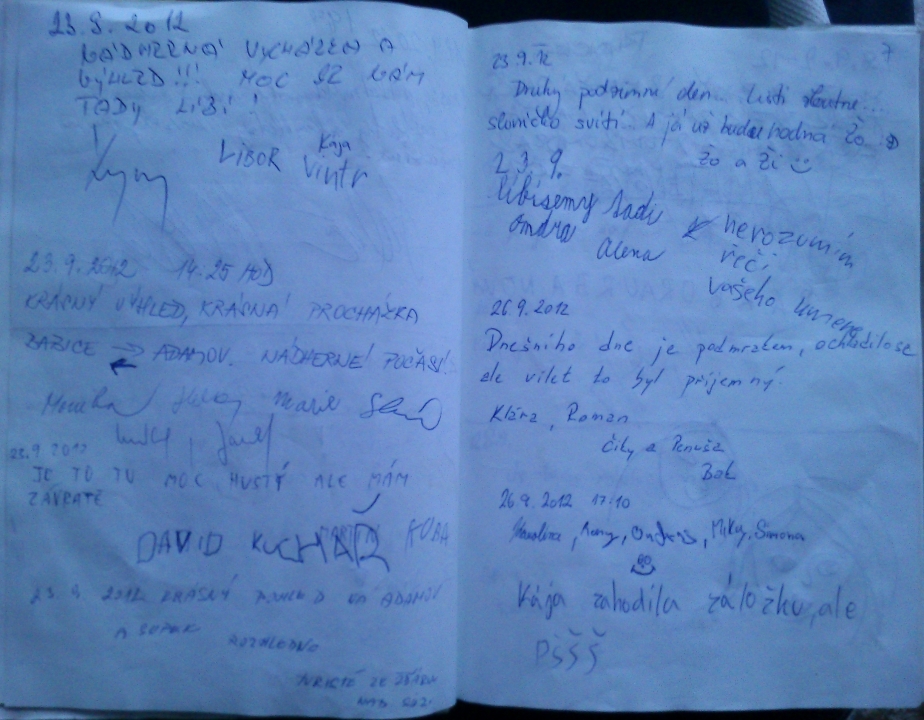 23.9.2012
NÁDHERNÁ VYCHÁZKA A
VÝHLED!!! MOC SE NÁM
TADY LÍBÍ!
LIBOR Kája
Vintr
23.9.2012 14.25 HOD
KRÁSNÝ VÝHLED, KRÁSNÁ PROCHÁZKA
BABICE → ADAMOV. NÁDHERNÉ POČASÍ!
Monika Marie
23.9 2012
JE TO TU MOC HUSTÝ ALE MÁM
ZÁVRATĚ
DAVID KUCHAŘ KUBA
23.9 2012 KRÁSNÝ POHLED NA ADAMOV
A SOPAK
ROZHLEDNO
TURISTÉ ZE ŽĎÁRU
NAD SÁZ.
7
23.9.12
Druhý podzimní den... Listí žloutne...
sluníčko svítí.. A já už budu hodná Žo..
Žo a Ži
23.9.
líbisemy tadi
Ondra
Alena
nerozumím
řeči
vašeho kmene
26.9.2012
Dnešního dne je podmračen, ochladilo se
ale výlet to byl příjemný.
Klára, Roman
Čiky a Penuša
Bak
26.9.2012 17:10
Karolína, Ondřej, Miky, Simona
Kája zahodila záložku, ale
PŠŠŠ